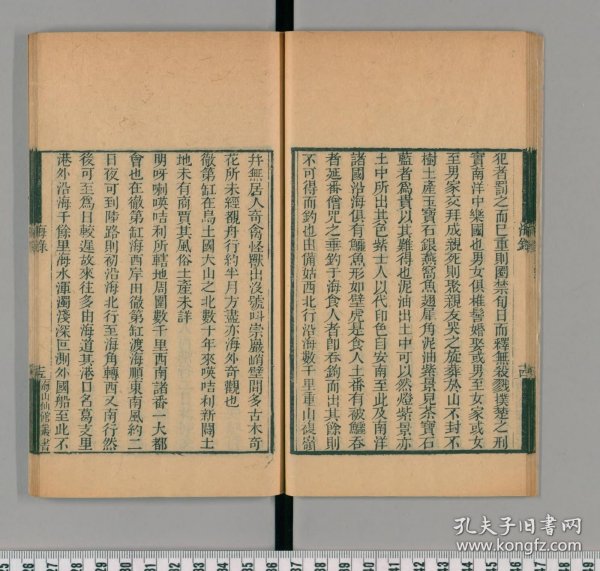 犯者罰之而已重則圈禁旬日而釋無殺戮撲楚之刑
實南洋中樂國也男女俱椎髻婚娶或男至女家或女
至男家交拜成親死則聚親友哭之旋葬於山不封不
樹土產玉寶石銀燕窩魚翅犀角泥油紫景兒茶寶石
藍者為貴以其難得也泥油出土中可以然燈紫景亦
土中所出其色紫士人以代印色自安南至此及南洋
諸國沿海俱有鱷魚形如壁虎是食人土番有被鱷吞
者延番僧咒之垂釣于海食人者即吞鉤而出其餘則
不可得而釣也由備姑西北行沿海數千里重山復嶺
幷無居人奇禽怪獸出沒號叫崇巖峭壁間多古木奇
花所未經覩舟行約半月方盡亦海外奇觀也
徹第缸在烏土國大山之北數十年來㗲咭利新闢土
地未有商賈其風俗土產未詳
明呀喇㗲咭利所轄地周圍數千里西南諸番一大都
會也在徹第缸海西岸由徹第缸渡海順東南風約二
日夜可到陸路則初沿海北行至海角轉西又南行然
後可至為日較遲故來往多由海道其港口名葛支里
港外沿海千餘里海水渾濁淺深叵測外國船至此不
海錄
海錄
海山仙館叢書
孔夫子旧书网
www.kongfz.com
25 26 27 28 29 30 31 32 33 34 35 36 37 38 39 40 41 42 43 44 45 46 47 48 49